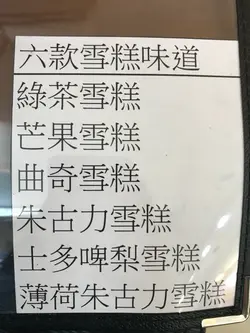 六款雪糕味道
綠茶雪糕
芒果雪糕
曲奇雪糕
朱古力雪糕
士多啤梨雪糕
薄荷朱古力雪糕